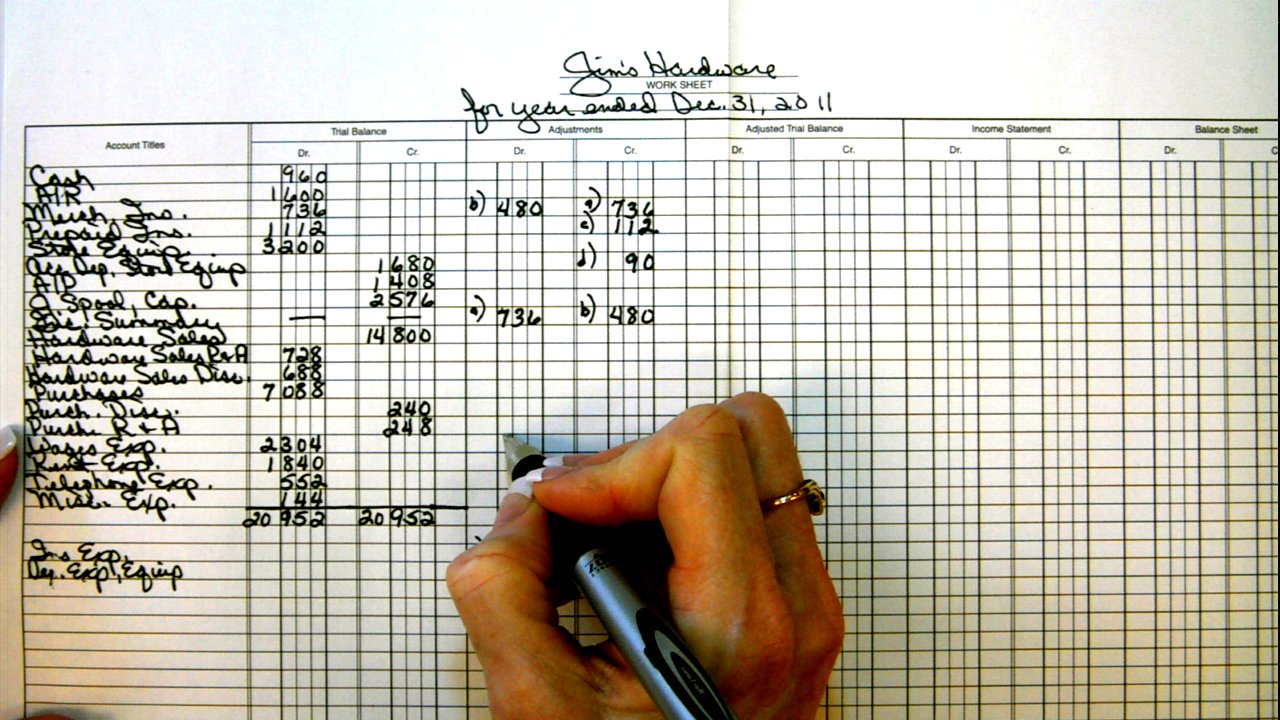 Jim's Hardware
WORK SHEET
for year ended Dec. 31, 2011
Account Titles Trial Balance Adjustments Adjusted Trial Balance Income Statement Balance Sheet
Dr. Cr. Dr. Cr. Dr. Cr. Dr. Cr. Dr. C
Cash 960
A/R 1 600
Merch. Ins. 736 b) 480 a) 736
Prepaid Ins. 1 112 c) 112
Store Equip. 3200
Acc. Dep. Store Equip 1 680 d) 90
A/P 1 408
J. Spool, Cap. 2576
Inc. Summary — — a) 736 b) 480
Hardware Sales 14 800
Hardware Sales R+A 728
Hardware Sales Disc. 688
Purchases 7 088
Purch. Disc. 240
Purch. R + A 248
Wages Exp. 2304
Rent Exp. 1 840
Telephone Exp. 552
Misc. Exp. 144
20 952 20 952
Ins Exp.
Dep. Exp, Equip